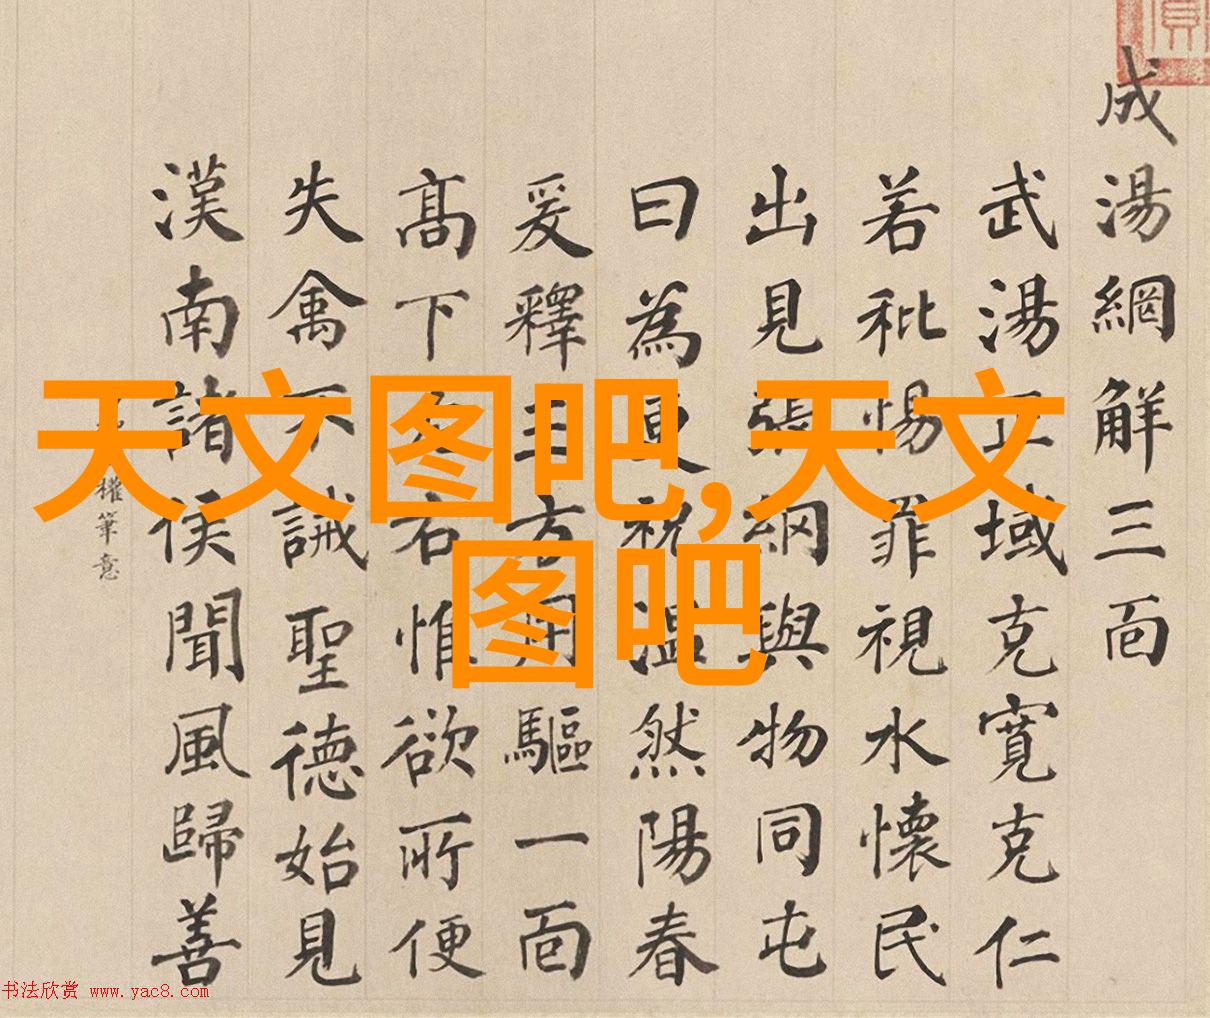 成湯網解三面
武湯正域克寬克仁
若秕惕罪視水懷民
出見張網與物同屯
曰為更祝温然陽春
爰釋三方用驅一面
髙下左右惟欲所便
失禽不誡聖德始見
漢南諸侯聞風歸善
權筆意
天文图吧,天文
图吧
书法欣赏 www.yac8.com